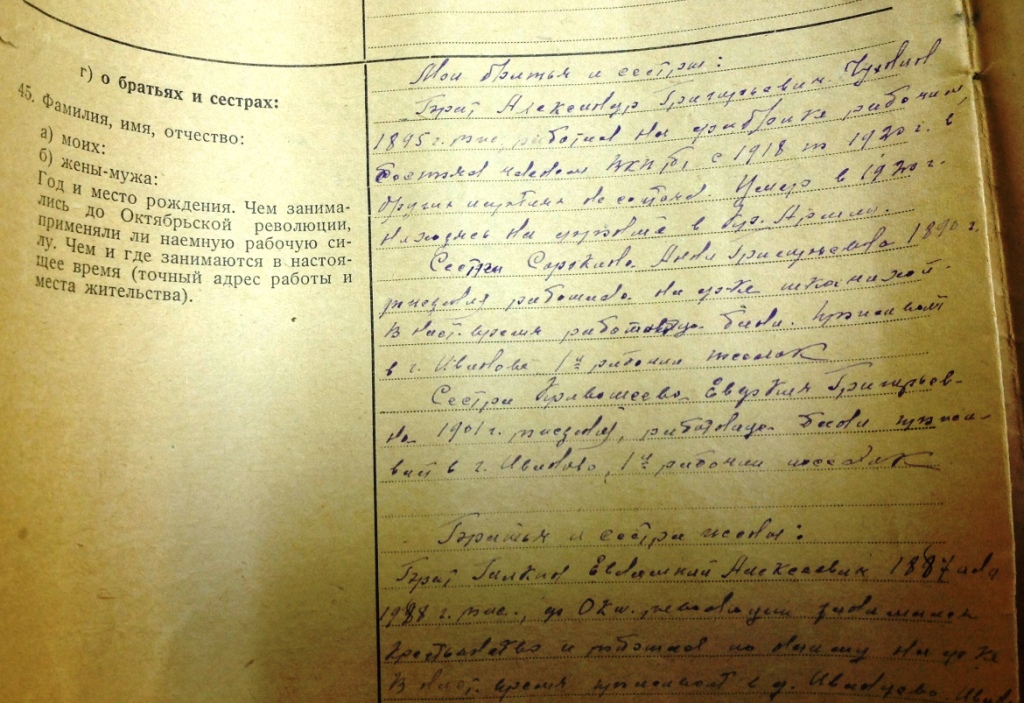 г) о братьях и сестрах:
45. Фамилия, имя, отчество:
а) моих:
б) жены-мужа:
Год и место рождения. Чем занима-
лись до Октябрьской революции,
применяли ли наемную рабочую си-
лу. Чем и где занимаются в настоя-
щее время (точный адрес работы и
места жительства).
Мои братья и сестры:
Брат Александр Григорьевич
1895 г. рож. работал на фабрике рабочим,
Состоял членом ВКП(б) с 1918 по 1920 г. в
других партиях не состоял Умер в 1920 г.
находясь на службе в Кр. Армии.
Сестра Сорокина Анна Григорьевна 1890 г.
рождения работала на ф-ке
В наст. время Проживает
в г. Иванове, 1й рабочий поселок
Сестра Кривошеева Евдокия Григорьев-
на 1901 г. рождений, прожи-
вает в г. Иваново, 1й рабочий поселок
Братья и сестры жены:
Брат Галкин Евлампий Алексеевич 1887 или
1988 г. рож., до Окт. революции занимался
крестьянство и работал по найму на ф-ке
В наст. время проживает в д.